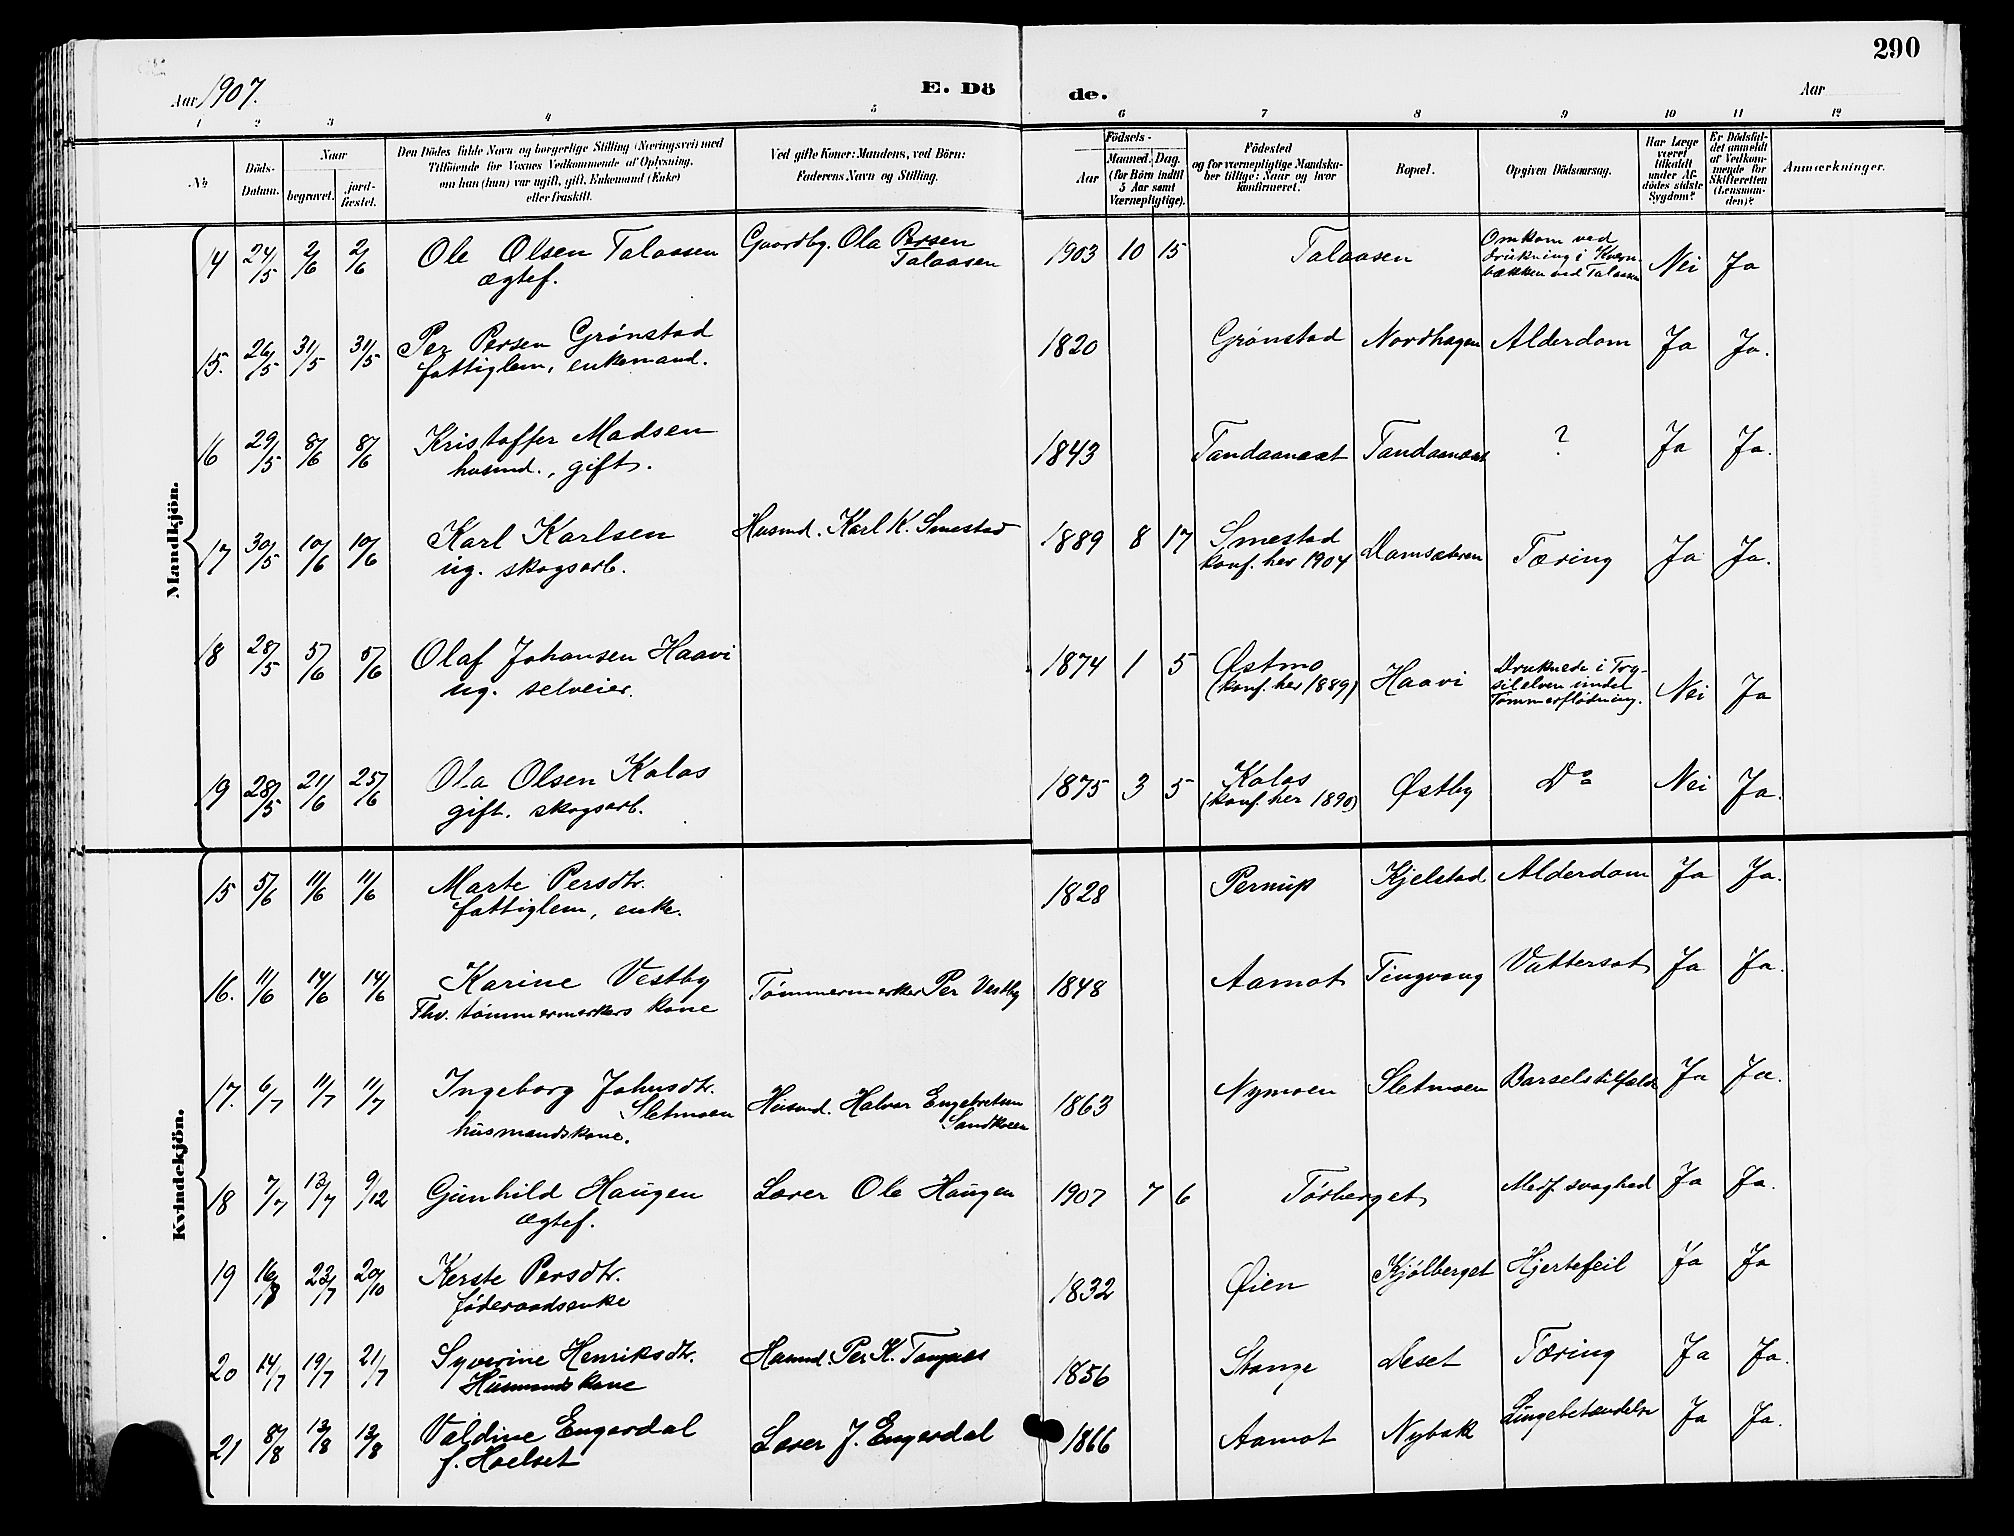 290
Aar 1907.
E. Dö de.
Aar
1 2 3 4 5 6 7 8 9 10 11 12
No
Döds-Datum.
Naar
begravet.
jord-fæstet.
Den Dödes fulde Navn og borgerlige Stilling (Næringsvei) med
Tilföiende for Voxnes Vedkommende af Oplysning,
om han (hun) var ugift, gift, Enkemand (Enke)
eller fraskilt.
Ved gifte Koner: Mandens, ved Börn:
Faderens Navn og Stilling.
Födsels-
Aar
Maaned. Dag.
(for Börn indtil
5 Aar samt
Værnepligtige).
Födested
og for værnepligtige Mandska-
ber tillige: Naar og hvor
konfirmeret.
Bopæl.
Opgiven Dödsaarsag.
Har Læge
været
tilkaldt
under Af-
dödes sidste
Sygdom?
Er Dödsfal-
det anmeldt
af Vedkom-
mende for
Skifteretten
(Lensman-
den)?
Anmærkninger.
Mandkjön.
14 24/5 2/6 2/6 Ole Olsen Talaasen Gaardbr. Ola Persen 1903 10 15 Talaasen Omkom ved Nei Ja
ægtef. Talaasen
drukning i Kvern-
bækken ved Talaasen
15. 26/5 31/5 31/5 Per Persen Grønstad 1820 Grønstad Nordhagen Alderdom Ja Ja.
fattiglem, enkemand.
16 29/5 8/6 8/6 Kristoffer Madsen 1843 Tandaanæst Tandaanæst ? Ja Ja.
husmd., gift.
17 30/5 10/6 10/6 Karl Karlsen Husmd. Karl K. Smestad 1889 8 17 Smestad Damsætren Tæring Ja Ja.
ug. skogsarb. konf. her 1904
18 28/5 5/6 5/6 Olaf Johansen Haavi 1874 1 5 Østmo Haavi Druknede i Try- Nei Ja
ug. selveier. (konf. her 1889)
silelven under
Tømmerflødning.
19 28/5 21/6 25/6 Ola Olsen Kolos 1875 3 5 Kolos Østby Do Nei Ja.
gift. skogsarb. (konf. her 1890)
Kvindekjön.
15 5/6 11/6 11/6 Marte Persdtr. 1828 Pernup Kjelstad Alderdom Ja Ja.
fattiglem, enke.
16. 11/6 14/6 14/6 Karine Vestby Tømmermerker Per Vestby 1848 Aamot Tingvang Vattersot Ja Ja.
Fhv. tømmermerkers kone
17. 6/7 11/7 11/7 Ingeborg Johnsdtr. Husmd. Halvor Engebretsen 1863 Nymoen Sletmoen Barselstilfælde Ja Ja.
Sletmoen
husmandskone.
18 7/7 13/7 9/12 Gunhild Haugen Lærer Ole Haugen 1907 7 6 Tørberget Medf. svaghed Ja Ja.
ægtef.
19 16/8 23/7 20/10 Kerste Persdtr. 1832 Øien Kjølberget Hjertefeil Ja Ja
føderaadsenke
20 14/7 19/7 21/7 Syverine Henriksdtr. Husmd. Per K. Tangnes 1856 Stange Deset Tæring Ja Ja.
Husmandskone
21 8/8 13/8 13/8 Valdine Engerdal Lærer J. Engerdal 1866 Aamot Nybak Lungebetændelse Ja Ja.
f. Hoelset